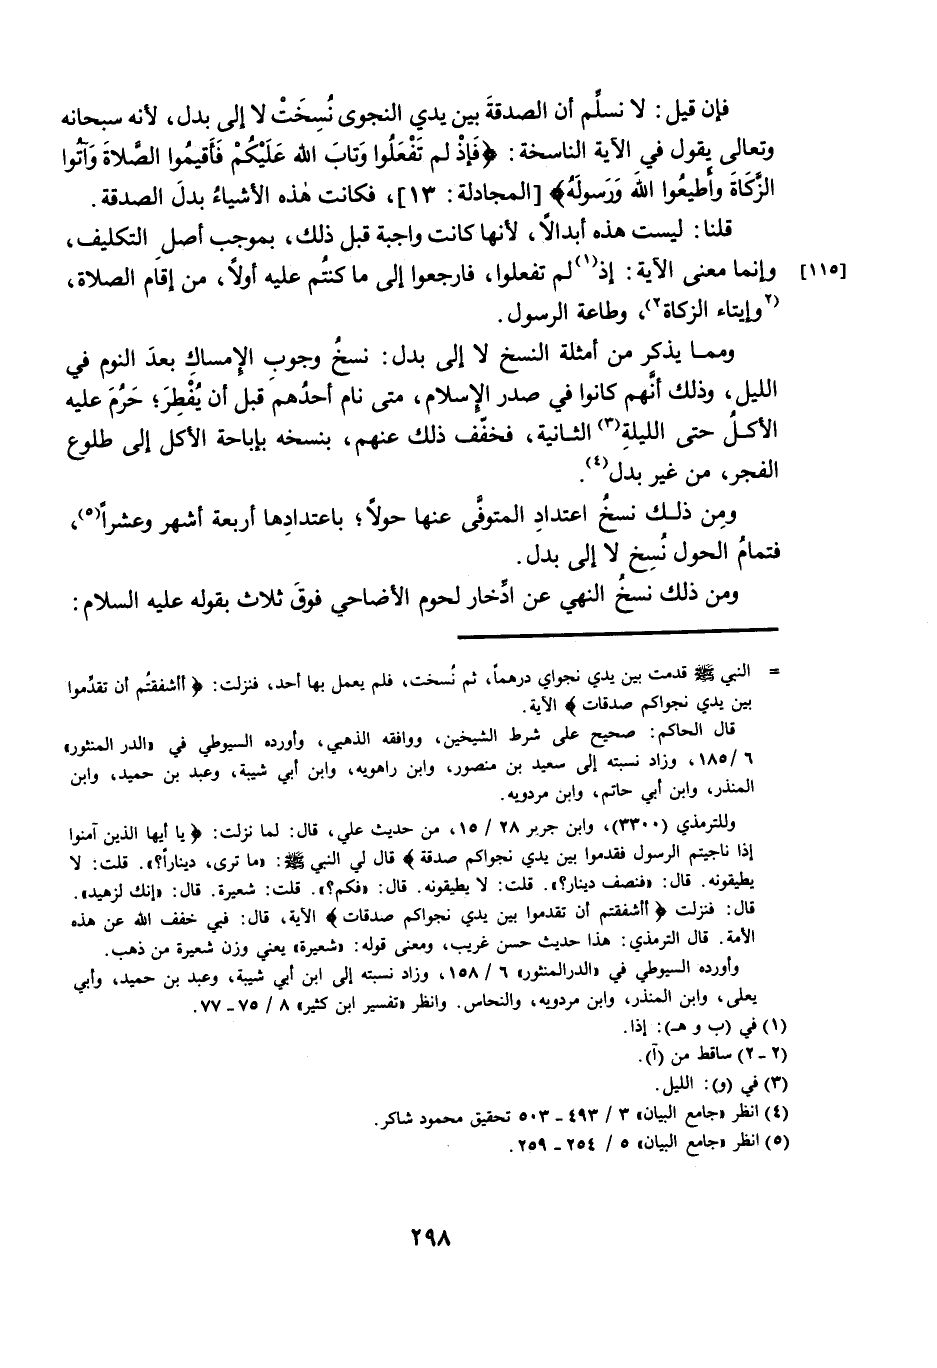 فإن قيل: لا نسلِّم أن الصدقةَ بين يدي النجوى نُسِخَتْ لا إلى بدل، لأنه سبحانه
وتعالى يقول في الآية الناسخة: ﴿فَإِذْ لم تَفْعَلُوا وَتابَ الله عَلَيْكُمْ فَأَقيمُوا الصَّلاةَ وَآتُوا
الزَّكَاةَ وأَطيعُوا اللهَ وَرَسولَهُ﴾ [المجادلة: ١٣]، فكانت هٰذه الأشياءُ بدلَ الصدقة.
قلنا: ليست هذه أبدالاً، لأنها كانت واجبة قبل ذلك، بموجب أصلِ التكليف،
[١١٥] وإنما معنى الآية: إذ(١) لم تفعلوا، فارجعوا إلى ما كنتُم عليه أولاً، من إقام الصلاة،
(٢وإيتاء الزكاة٢)، وطاعة الرسول.
ومما يذكر من أمثلة النسخ لا إلى بدل: نسخُ وجوبِ الإمساكِ بعدَ النوم في
الليل، وذلك أنَّهم كانوا في صدر الإسلام، متى نام أحدُهم قبل أن يُفْطِرَ؛ حَرُمَ عليه
الأكلُ حتى الليلةِ(٣) الثانية، فخفّف ذلك عنهم، بنسخه بإباحة الأكل إلى طلوع
الفجر، من غير بدل(٤).
ومِن ذلك نسخُ اعتدادِ المتوفَّى عنها حولاً؛ باعتدادِها أربعة أشهر وعشراً(٥)،
فتمامُ الحول نُسِخ لا إلى بدل.
ومن ذلك نسخُ النهي عن ادِّخار لحوم الأضاحي فوقَ ثلاث بقوله عليه السلام:
= النبي ﷺ قدمت بين يدي نجواي درهماً، ثم نُسخت، فلم يعمل بها أحد، فنزلت: ﴿أأشفقتُم أن تقدِّموا
بين يدي نجواكم صدقات﴾ الآية.
قال الحاكم: صحيح على شرط الشيخين، ووافقه الذهبي، وأورده السيوطي في «الدر المنثور»
٦/ ١٨٥، وزاد نسبته إلى سعيد بن منصور، وابن راهويه، وابن أبي شيبة، وعبد بن حميد، وابن
المنذر، وابن أبي حاتم، وابن مردويه.
وللترمذي (٣٣٠٠)، وابن جرير ٢٨ / ١٥، من حديث علي، قال: لما نزلت: ﴿يا أيها الذين آمنوا
إذا ناجيتم الرسول فقدموا بين يدي نجواكم صدقة﴾ قال لي النبي ﷺ: «ما ترى، ديناراً؟». قلت: لا
يطيقونه. قال: «فنصف دينار؟». قلت: لا يطيقونه. قال: «فكم؟». قلت: شعيرة. قال: «إنك لزهيد».
قال: فنزلت ﴿أأشفقتم أن تقدموا بين يدي نجواكم صدقات﴾ الآية، قال: فبي خفف الله عن هذه
الأمة. قال الترمذي: هذا حديث حسن غريب، ومعنى قوله: «شعيرة» يعني وزن شعيرة من ذهب.
وأورده السيوطي في «الدرالمنثور» ٦ / ١٥٨، وزاد نسبته إلى ابن أبي شيبة، وعبد بن حميد، وأبي
يعلى، وابن المنذر، وابن مردويه، والنحاس. وانظر «تفسير ابن كثير» ٨ / ٧٥ ـ ٧٧.
(١) في (ب و هـ): إذا.
(٢ ـ ٢) ساقط من (آ).
(٣) في (و): الليل.
(٤) انظر «جامع البيان» ٣ / ٤٩٣ ـ ٥٠٣ تحقيق محمود شاكر.
(٥) انظر «جامع البيان» ٥ / ٢٥٤ ـ ٢٥٩.
٢٩٨